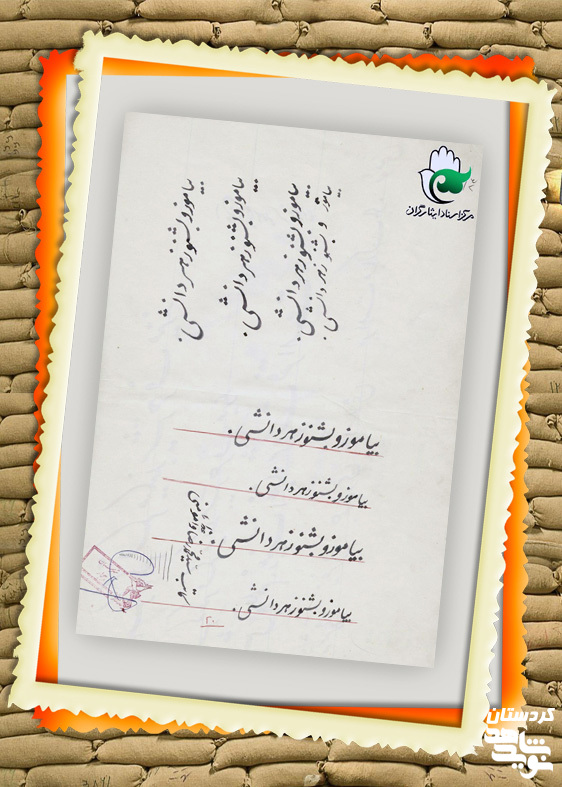 مرکز اسناد ایثارگران
بیاموز و بشنو ز هر دانشی.
بیاموز و بشنو ز هر دانشی.
بیاموز و بشنو ز هر دانشی.
بیاموز و بشنو ز هر دانشی.
بیاموز و بشنو ز هر دانشی.
بیاموز و بشنو ز هر دانشی.
بیاموز و بشنو ز هر دانشی.
بیاموز و بشنو ز هر دانشی.
۲۰
کردستان
نوید شاهد